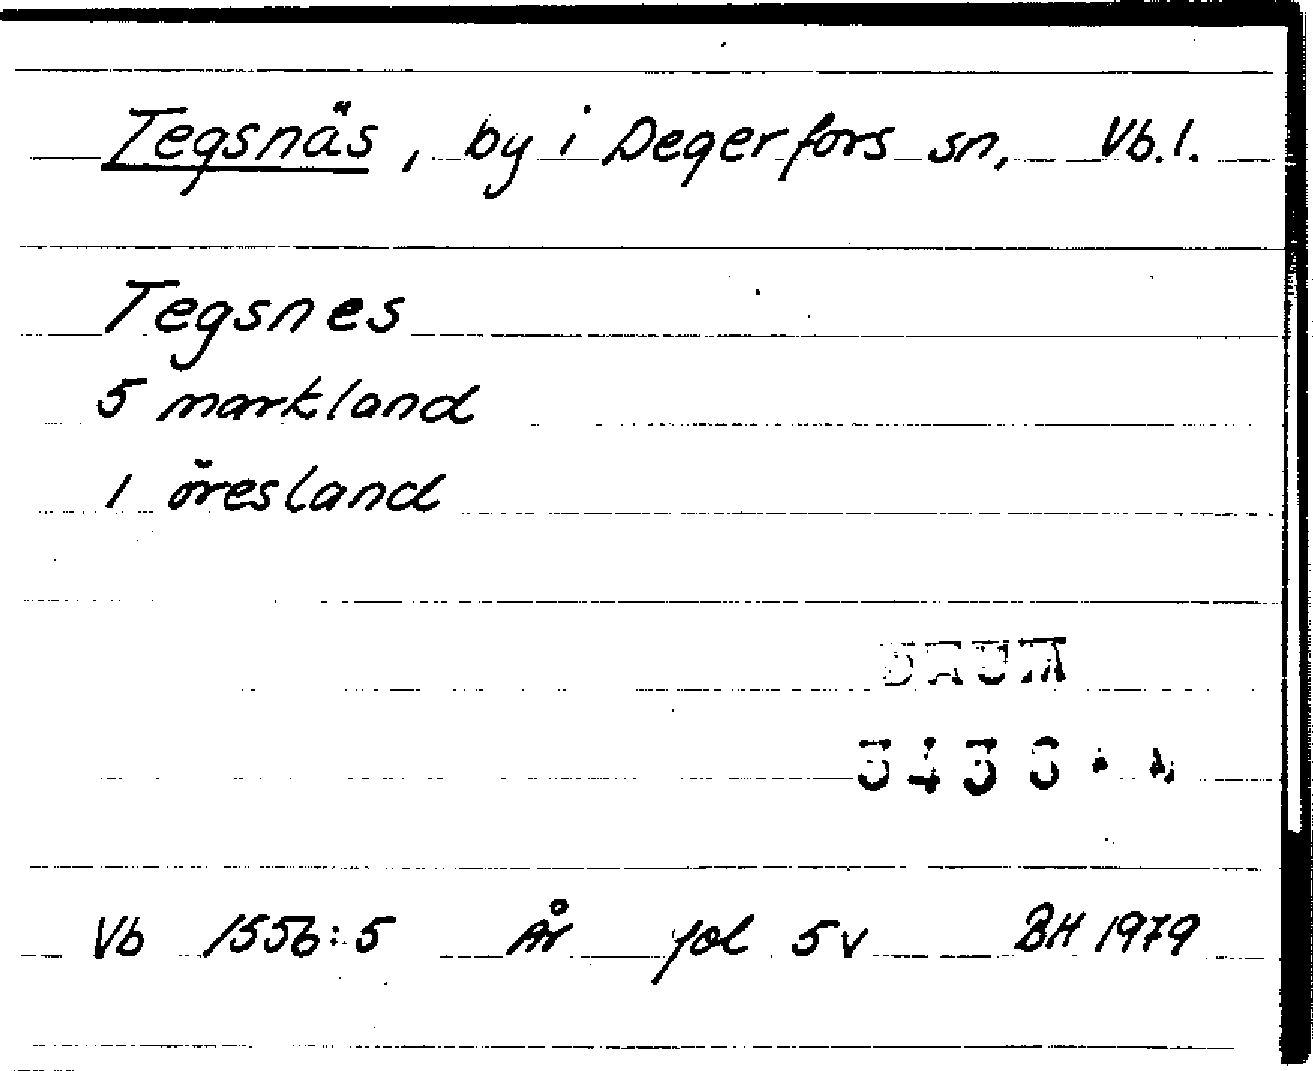 Tegsnäs, by i Degerfors sn, Vb.l.
Tegsnes
5 markland
1 öresland
DAUM
Vb 1556:5 År fol 5v BH 1979